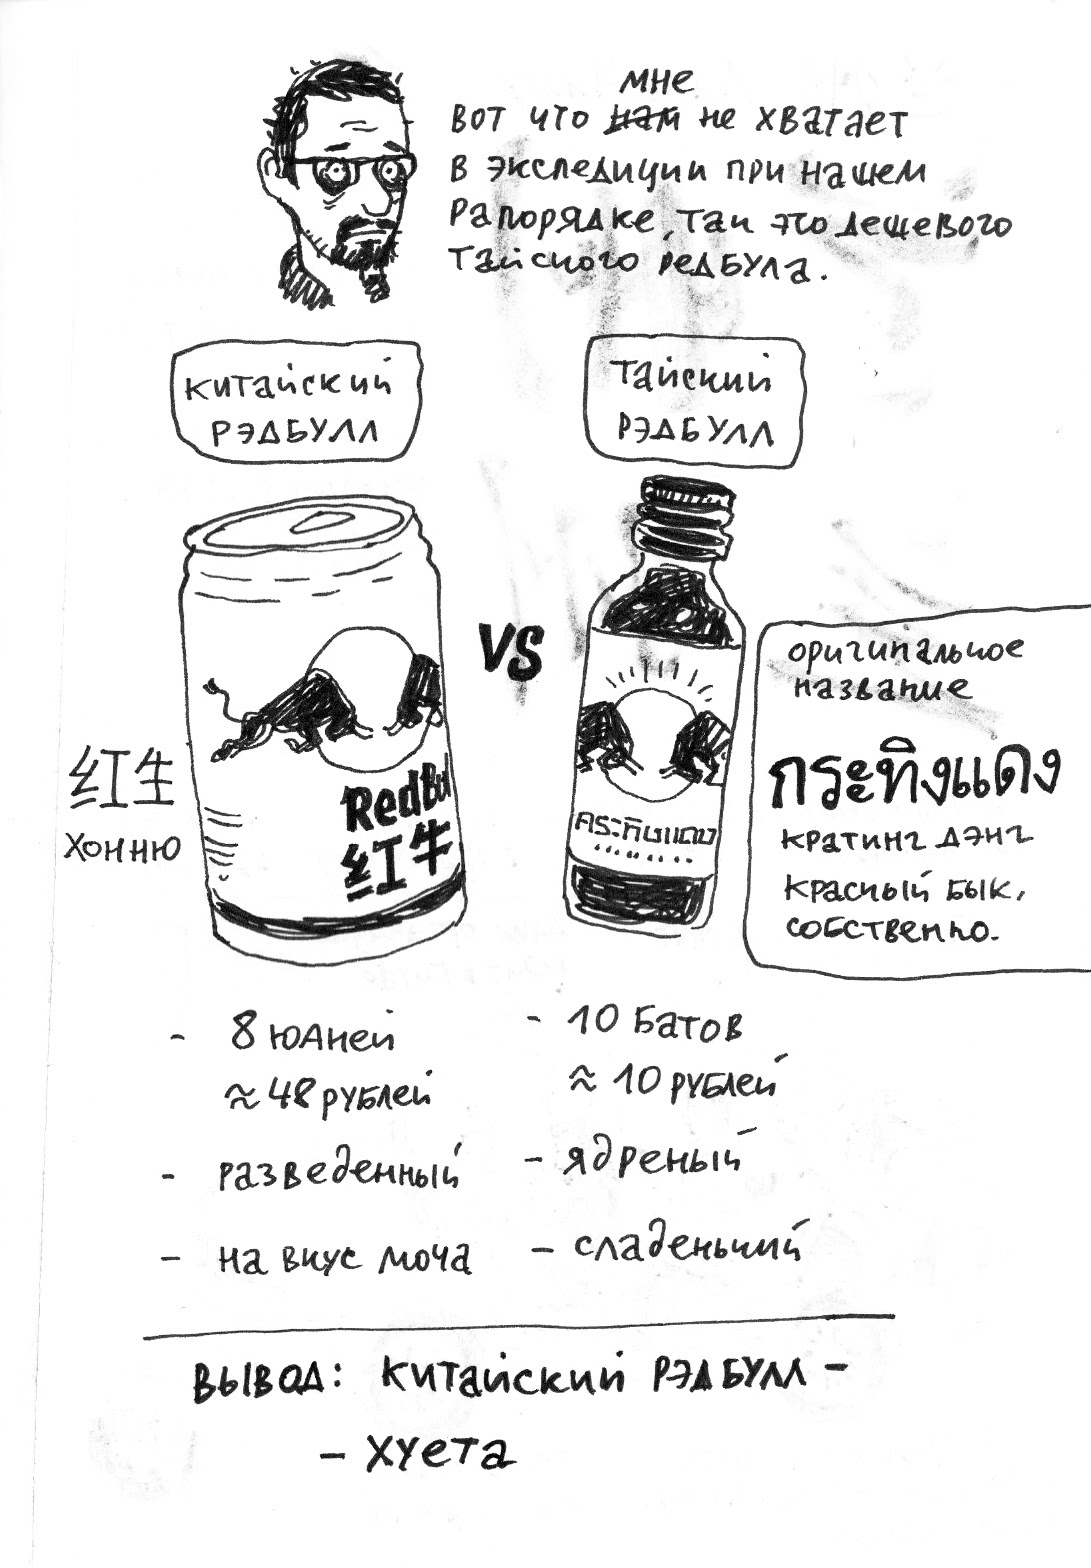 мне
Вот что нам не хватает
в экспедиции при нашем
рапорядке, так это дешевого
тайского редбула.
Китайский
рэдбулл
Тайский
рэдбулл
VS
红牛
хонню
RedBul
红牛
กระทิงแดง
оригинальное
название
กระทิงแดง
кратинг дэнг
красный бык,
собственно.
- 8 юаней
≈ 48 рублей
- разведенный
- на вкус моча
- 10 батов
≈ 10 рублей
- ядреный
- сладенький
Вывод: китайский рэдбулл -
- хуета